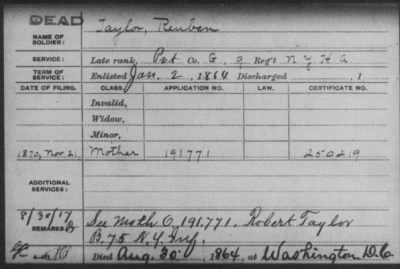 DEAD
NAME OF SOLDIER: Taylor, Reuben
SERVICE: Late rank, Pvt Co. G, 9 Reg't N Y H A
TERM OF SERVICE: Enlisted Jan. 2, 1864 Discharged , 1
DATE OF FILING. CLASS. APPLICATION NO. LAW. CERTIFICATE NO.
Invalid,
Widow,
Minor,
1870, Nov. 21. Mother 191771 250219
ADDITIONAL SERVICES:
8/30/17 See Moth. O, 191.771. Robert Taylor
REMARKS: B. 75 N.Y. Inf.
Died Aug. 20, 1864, at Washington D.C.